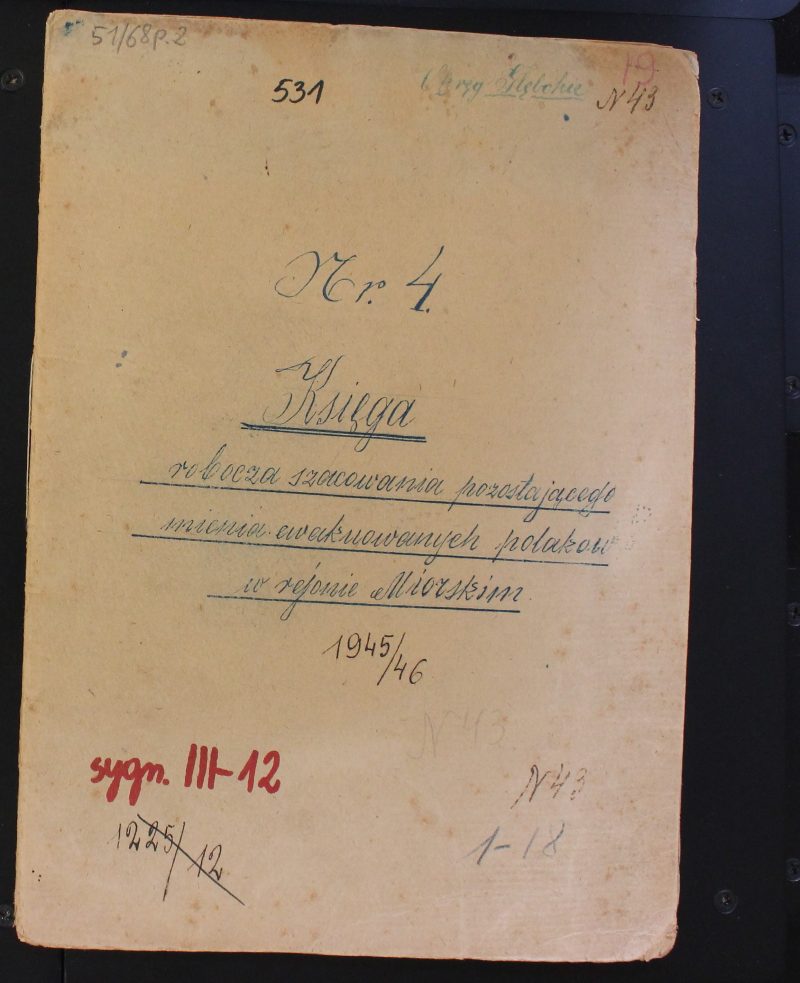 51/68 p. 2
19
531
Głębokie
N 43
Nr. 4.
Księga
robocza szacowania pozostającego
mienia ewakuowanych polaków
w réjonie Miorskim.
1945/46
N 43
sygn. III-12
N 43
1225/12
1-18